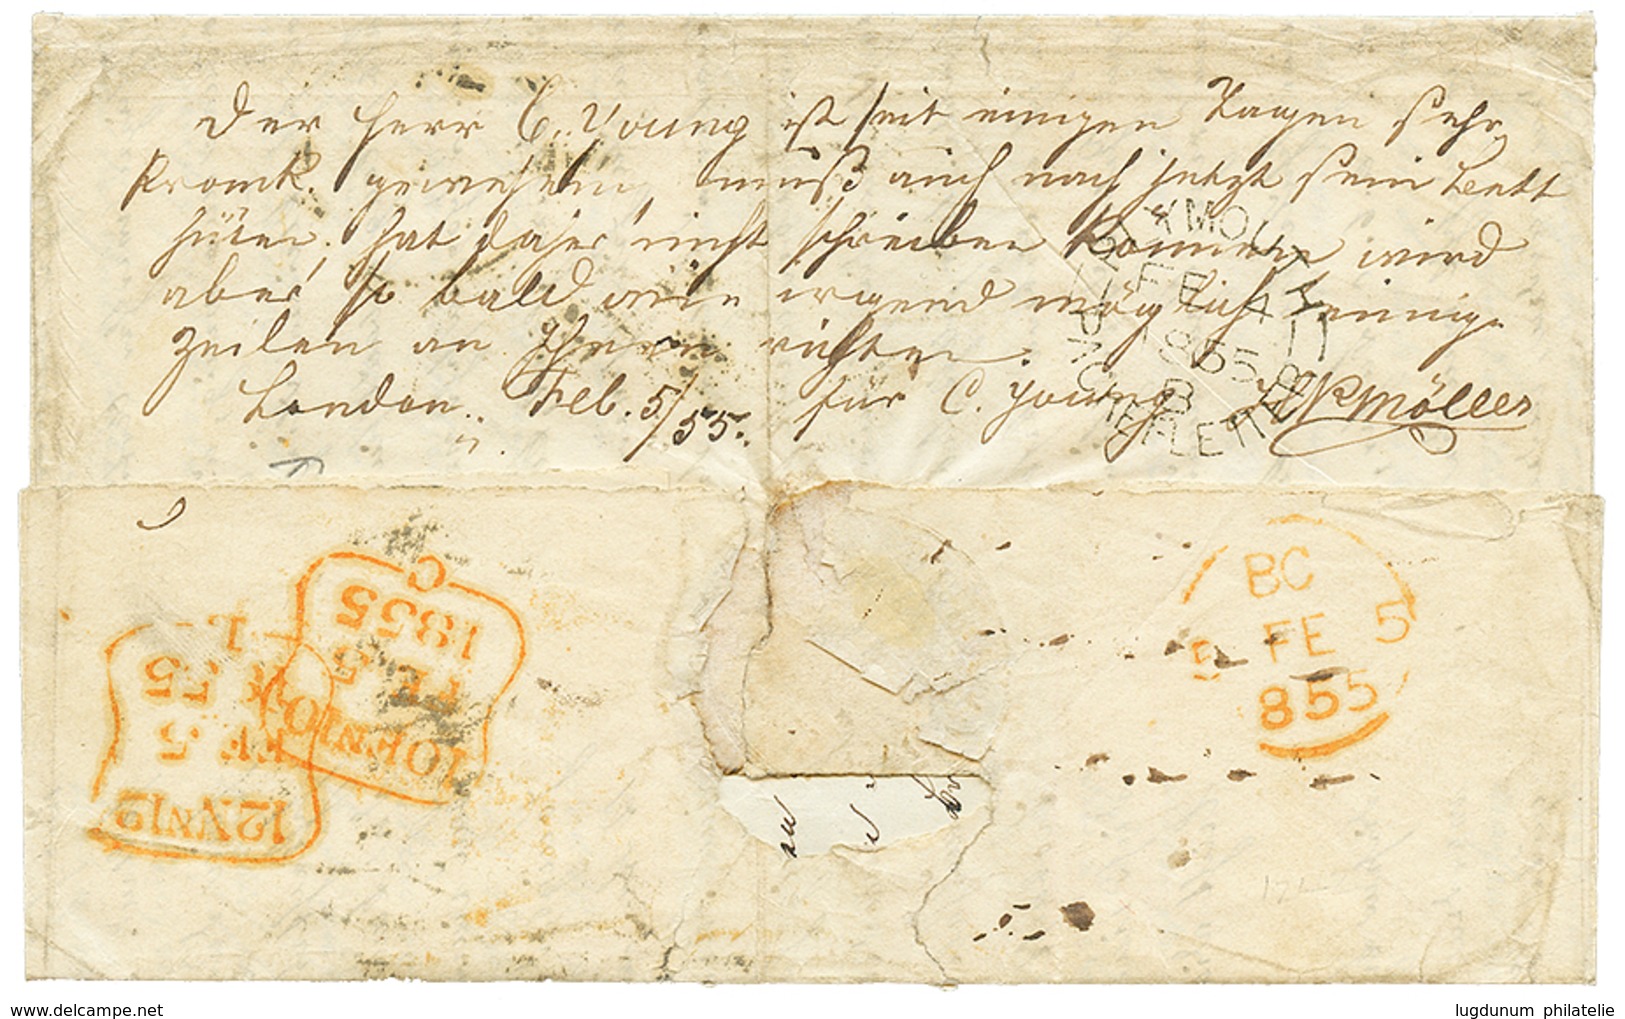 Der Herr C. Young ist seit einigen Tagen sehr
krank gewesen, muß auch noch jetzt sein Bett
hüten, hat daher nicht schreiben können wird
aber so bald wie irgend möglich einige
Zeilen an Ihnen richten.
London. Feb. 5/55. für C. Young Möller
PLYMOUTH
FE 4
1855
B
C
1855
FE 5
10FN10
12NN12
FE 5
55
BC
5 FE 5
855
delcampe.net
lugdunum philatelie